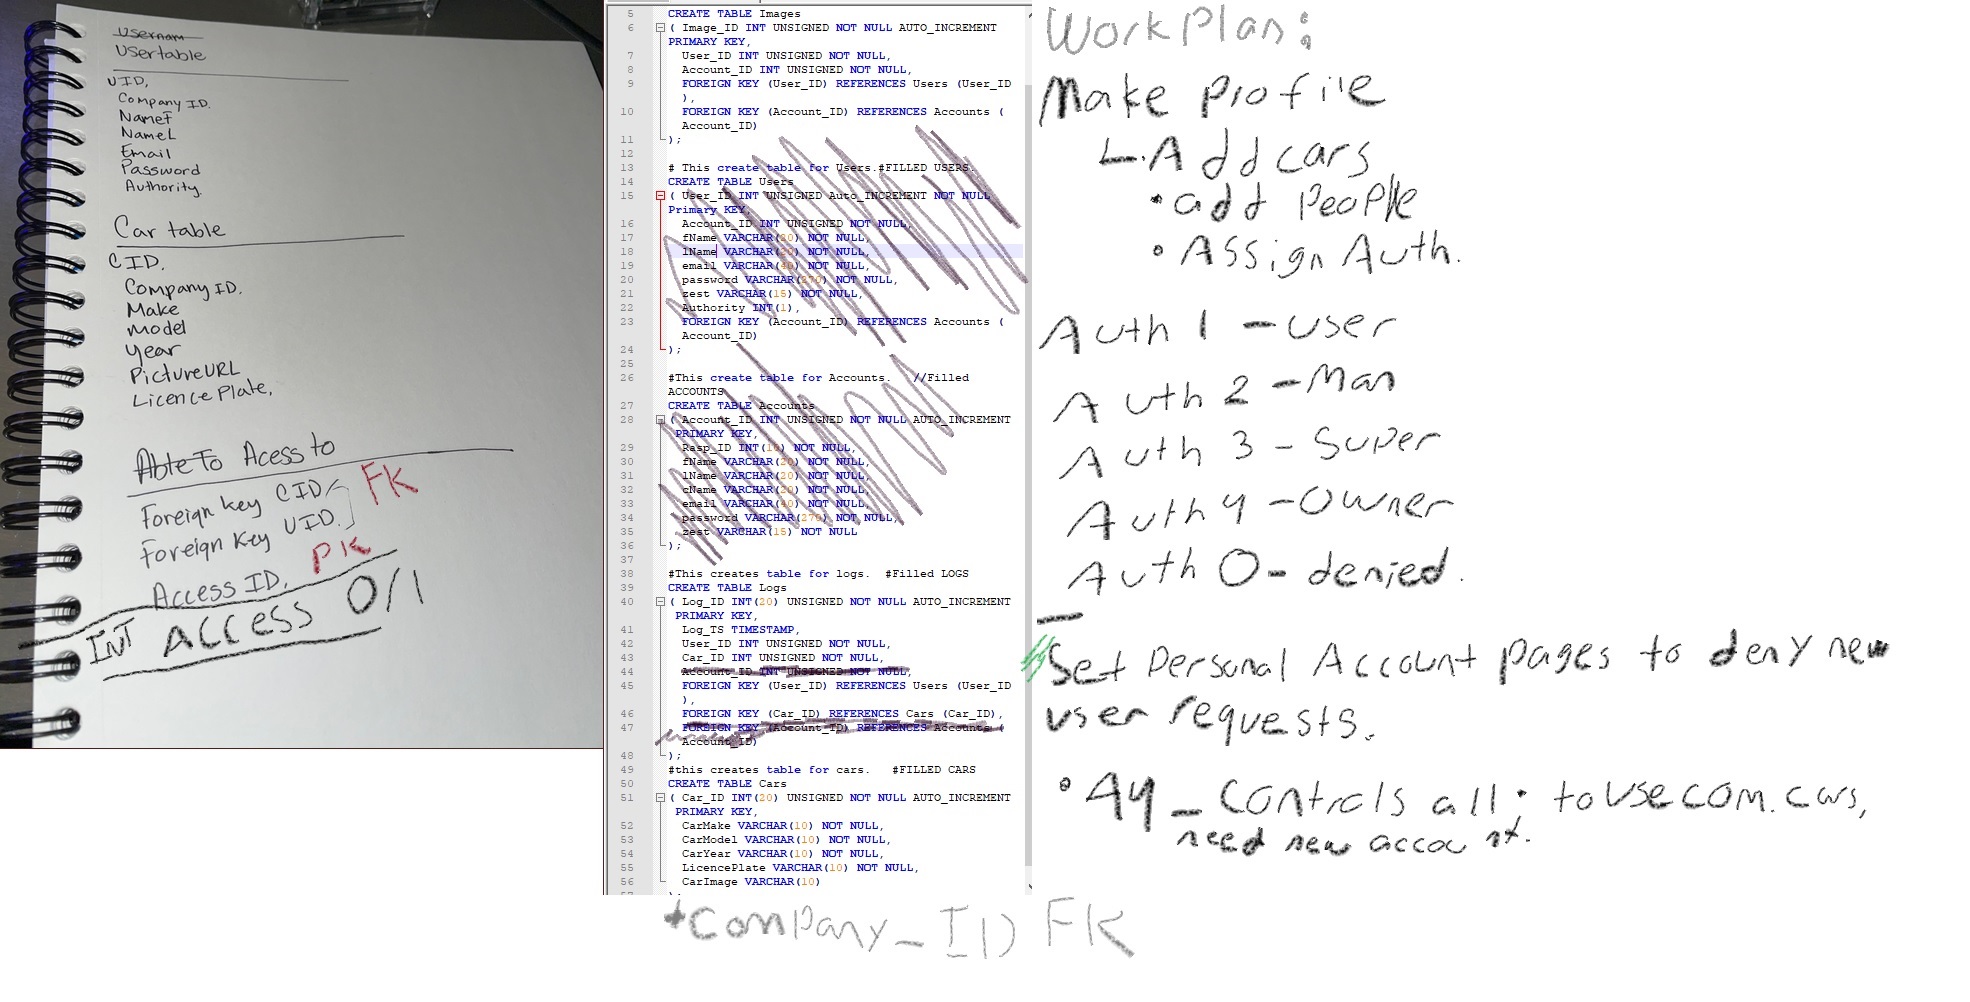 Usernam
Usertable
UID,
Company ID.
NameF
NameL
Email
Password
Authority.
Car table
CID.
Company ID.
Make
Model
Year
PictureURL
Licence Plate.
Able To Acess to
Foreign key CID
FK
Foreign Key UID.
Access ID.
PK
INT Access 0/1
5 CREATE TABLE Images
6 ( Image_ID INT UNSIGNED NOT NULL AUTO_INCREMENT
PRIMARY KEY,
7 User_ID INT UNSIGNED NOT NULL,
8 Account_ID INT UNSIGNED NOT NULL,
9 FOREIGN KEY (User_ID) REFERENCES Users (User_ID
),
10 FOREIGN KEY (Account_ID) REFERENCES Accounts (
Account_ID)
11 );
12
13 # This create table for Users.#FILLED USERS.
14 CREATE TABLE Users
15 ( User_ID INT UNSIGNED Auto_INCREMENT NOT NULL
Primary KEY,
16 Account_ID INT UNSIGNED NOT NULL,
17 fName VARCHAR(20) NOT NULL,
18 lName VARCHAR(20) NOT NULL,
19 email VARCHAR(40) NOT NULL,
20 password VARCHAR(270) NOT NULL,
21 zest VARCHAR(15) NOT NULL,
22 Authority INT(1),
23 FOREIGN KEY (Account_ID) REFERENCES Accounts (
Account_ID)
24 );
25
26 #This create table for Accounts. //Filled
ACCOUNTS
27 CREATE TABLE Accounts
28 ( Account_ID INT UNSIGNED NOT NULL AUTO_INCREMENT
PRIMARY KEY,
29 Rasp_ID INT(10) NOT NULL,
30 fName VARCHAR(20) NOT NULL,
31 lName VARCHAR(20) NOT NULL,
32 cName VARCHAR(20) NOT NULL,
33 email VARCHAR(40) NOT NULL,
34 password VARCHAR(270) NOT NULL,
35 zest VARCHAR(15) NOT NULL
36 );
37
38 #This creates table for logs. #Filled LOGS
39 CREATE TABLE Logs
40 ( Log_ID INT(20) UNSIGNED NOT NULL AUTO_INCREMENT
PRIMARY KEY,
41 Log_TS TIMESTAMP,
42 User_ID INT UNSIGNED NOT NULL,
43 Car_ID INT UNSIGNED NOT NULL,
44 Account_ID INT UNSIGNED NOT NULL,
45 FOREIGN KEY (User_ID) REFERENCES Users (User_ID
),
46 FOREIGN KEY (Car_ID) REFERENCES Cars (Car_ID),
47 FOREIGN KEY (Account_ID) REFERENCES Accounts (
Account_ID)
48 );
49 #this creates table for cars. #FILLED CARS
50 CREATE TABLE Cars
51 ( Car_ID INT(20) UNSIGNED NOT NULL AUTO_INCREMENT
PRIMARY KEY,
52 CarMake VARCHAR(10) NOT NULL,
53 CarModel VARCHAR(10) NOT NULL,
54 CarYear VARCHAR(10) NOT NULL,
55 LicencePlate VARCHAR(10) NOT NULL,
56 CarImage VARCHAR(10)
+Company_ID FK
Work Plan:
Make Profile
L.Add cars
• add People
• Assign Auth.
Auth 1 - user
Auth 2 - Man
Auth 3 - Super
Auth 4 - Owner
Auth 0 - denied.
//Set Personal Account pages to deny new
user requests.
• A4 - Controls all: to use com. cars,
need new account.